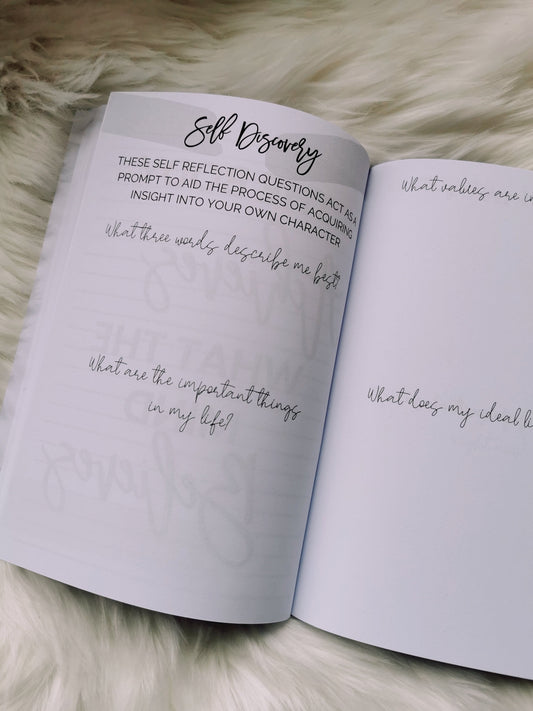 Self Discovery
THESE SELF REFLECTION QUESTIONS ACT AS A
PROMPT TO AID THE PROCESS OF ACQUIRING
INSIGHT INTO YOUR OWN CHARACTER
What three words describe me best?
What are the important things
in my life?
What values are
What does my ideal